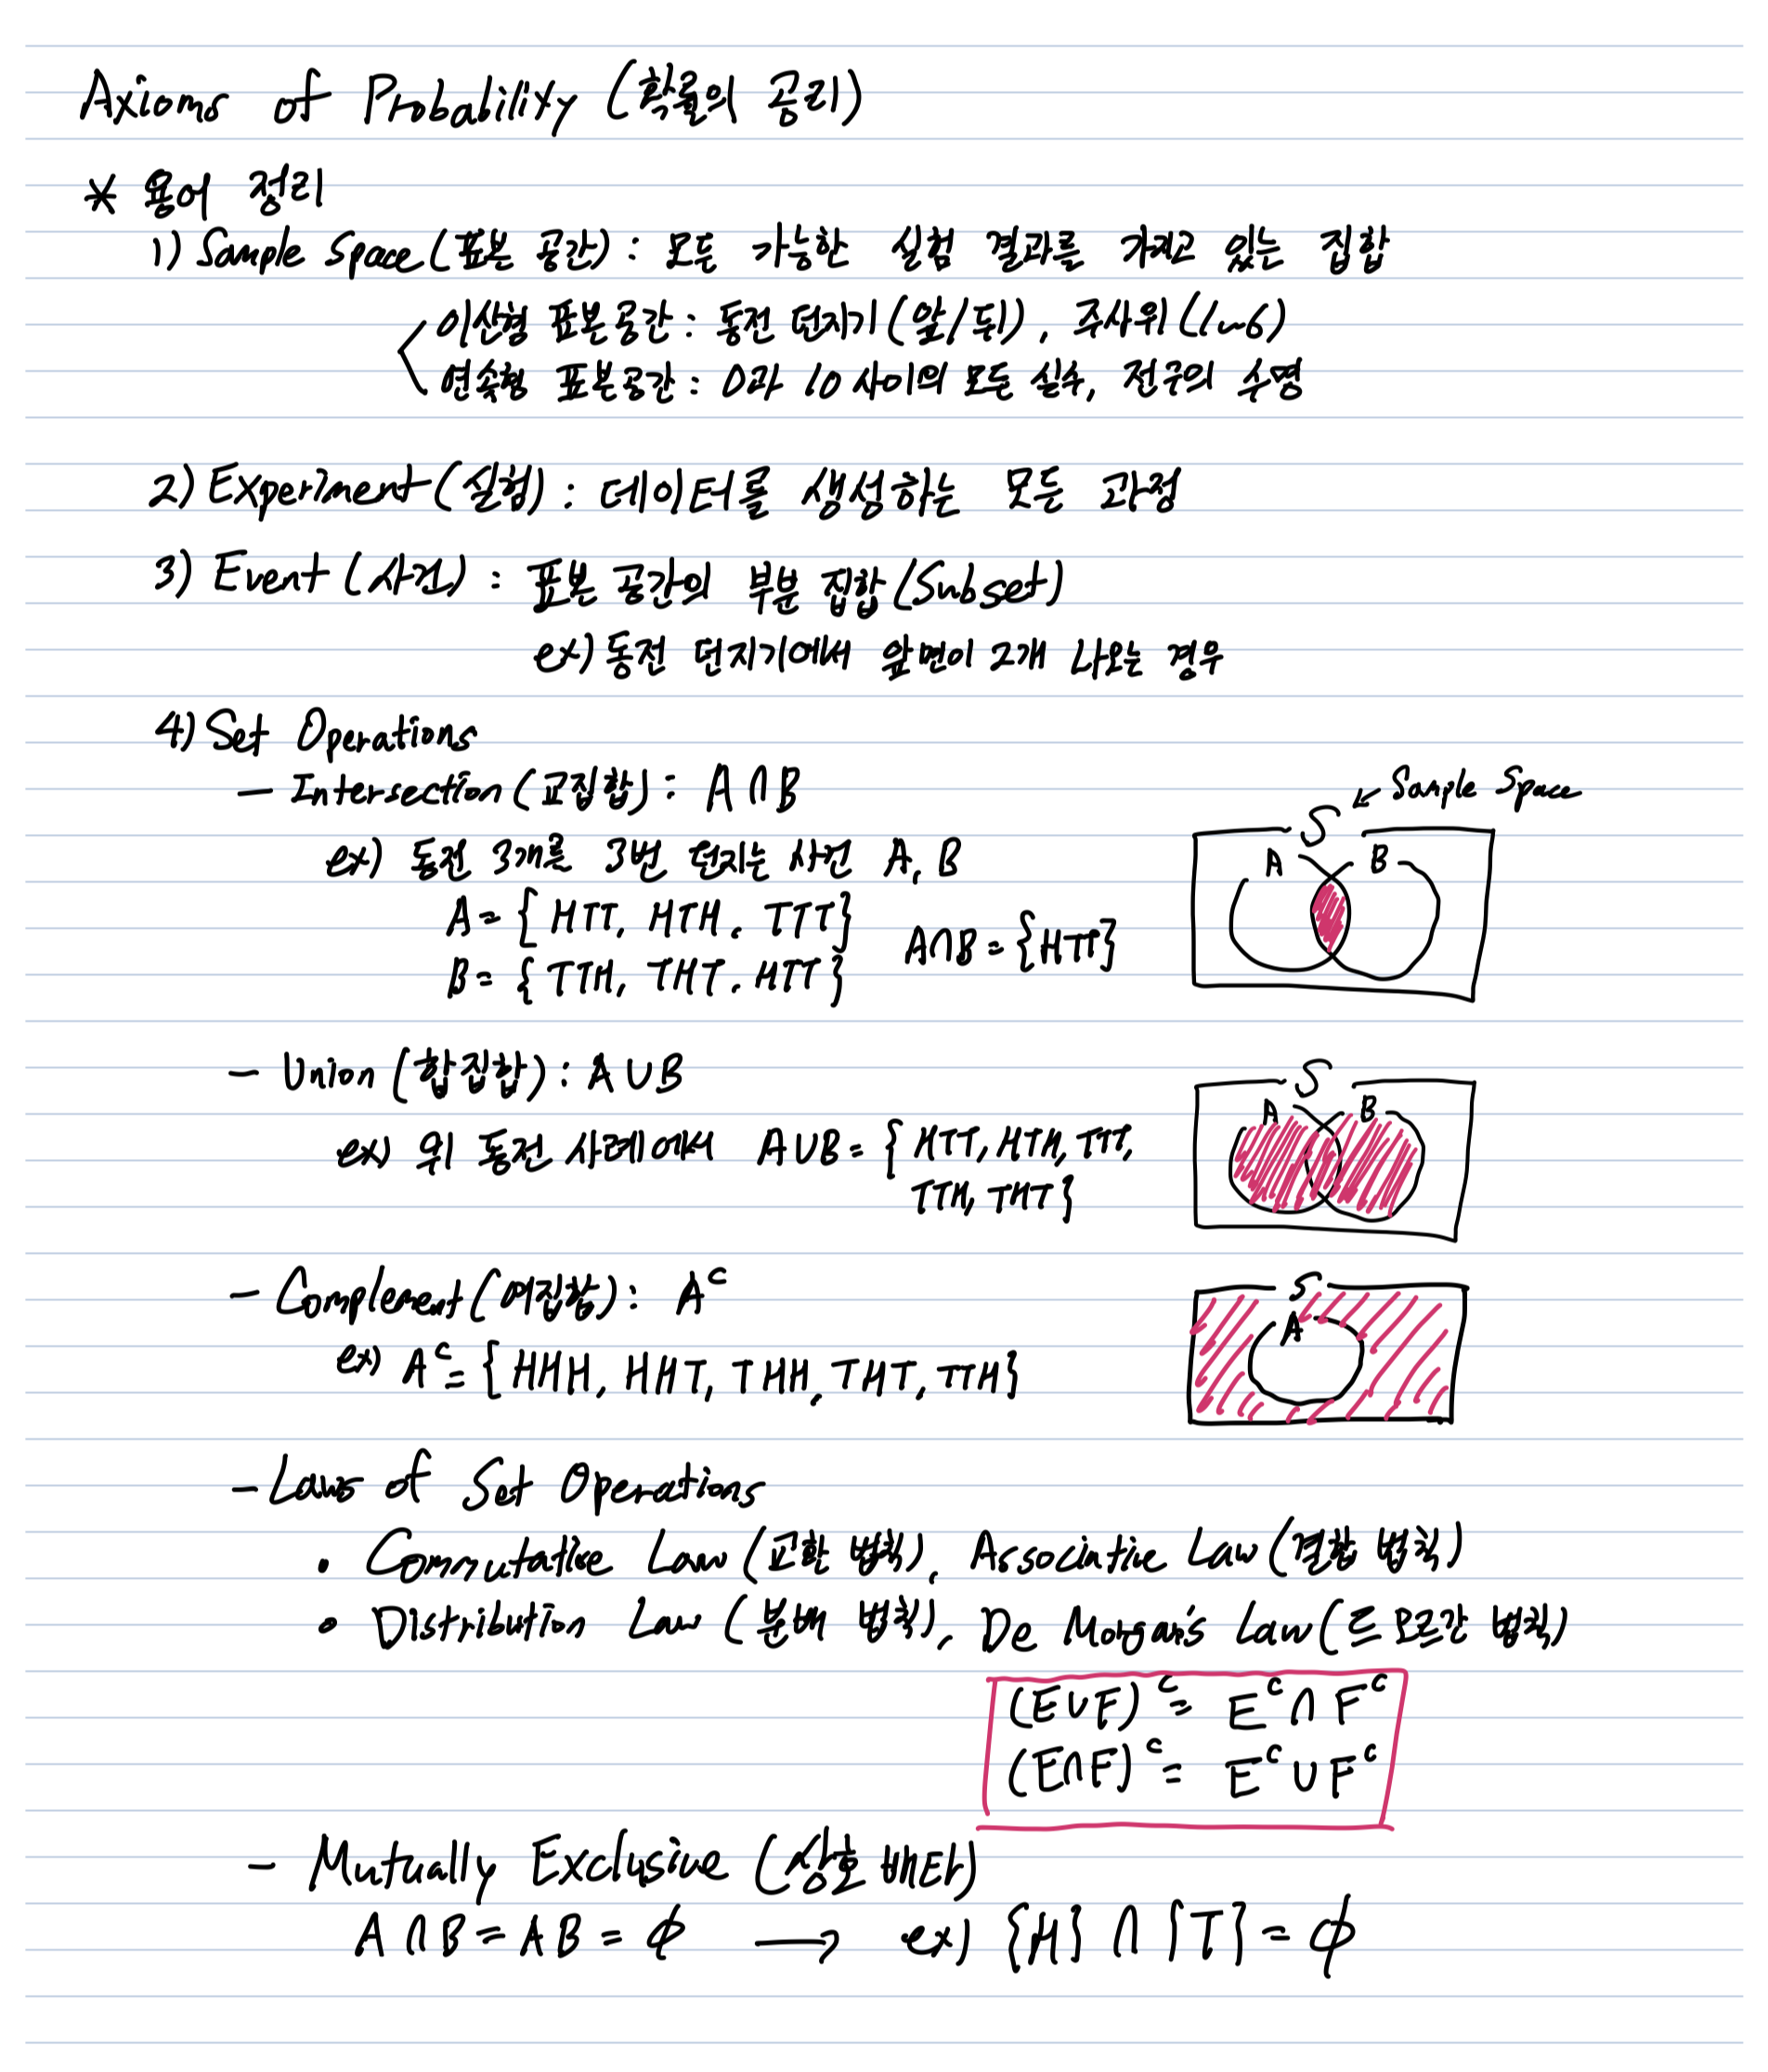 Axioms of Probability (확률의 공리)
* 용어 정리
1) Sample Space (표본 공간) : 모든 가능한 실험 결과를 가지고 있는 집합
이산형 표본공간 : 동전 던지기 (앞/뒤), 주사위 (1~6)
연속형 표본공간 : 0과 10 사이의 모든 실수, 전구의 수명
2) Experiment (실험) : 데이터를 생성하는 모든 과정
3) Event (사건) : 표본 공간의 부분 집합 (Subset)
ex) 동전 던지기에서 앞면이 2개 나오는 경우
4) Set Operations
- Intersection (교집합) : A∩B
← Sample Space
S
ex) 동전 3개를 3번 던지는 사건 A, B
A B
A = { HTT, HTH, TTT }
A∩B = {HTT}
B = { TTH, THT, HTT }
- Union (합집합) : A∪B
S
A B
ex) 위 동전 사례에서 A∪B = { HTT, HTH, TTT,
TTH, THT }
- Complement (여집합) : Aᶜ
S
A
ex) Aᶜ = { HHH, HHT, THH, THT, TTH }
- Laws of Set Operations
• Commutative Law (교환 법칙), Associative Law (결합 법칙)
• Distribution Law (분배 법칙), De Morgan's Law (드 모르간 법칙)
(E∪F)ᶜ = Eᶜ∩Fᶜ
(E∩F)ᶜ = Eᶜ∪Fᶜ
- Mutually Exclusive (상호 배타)
A∩B = AB = ϕ → ex) {H} ∩ {T} = ϕ